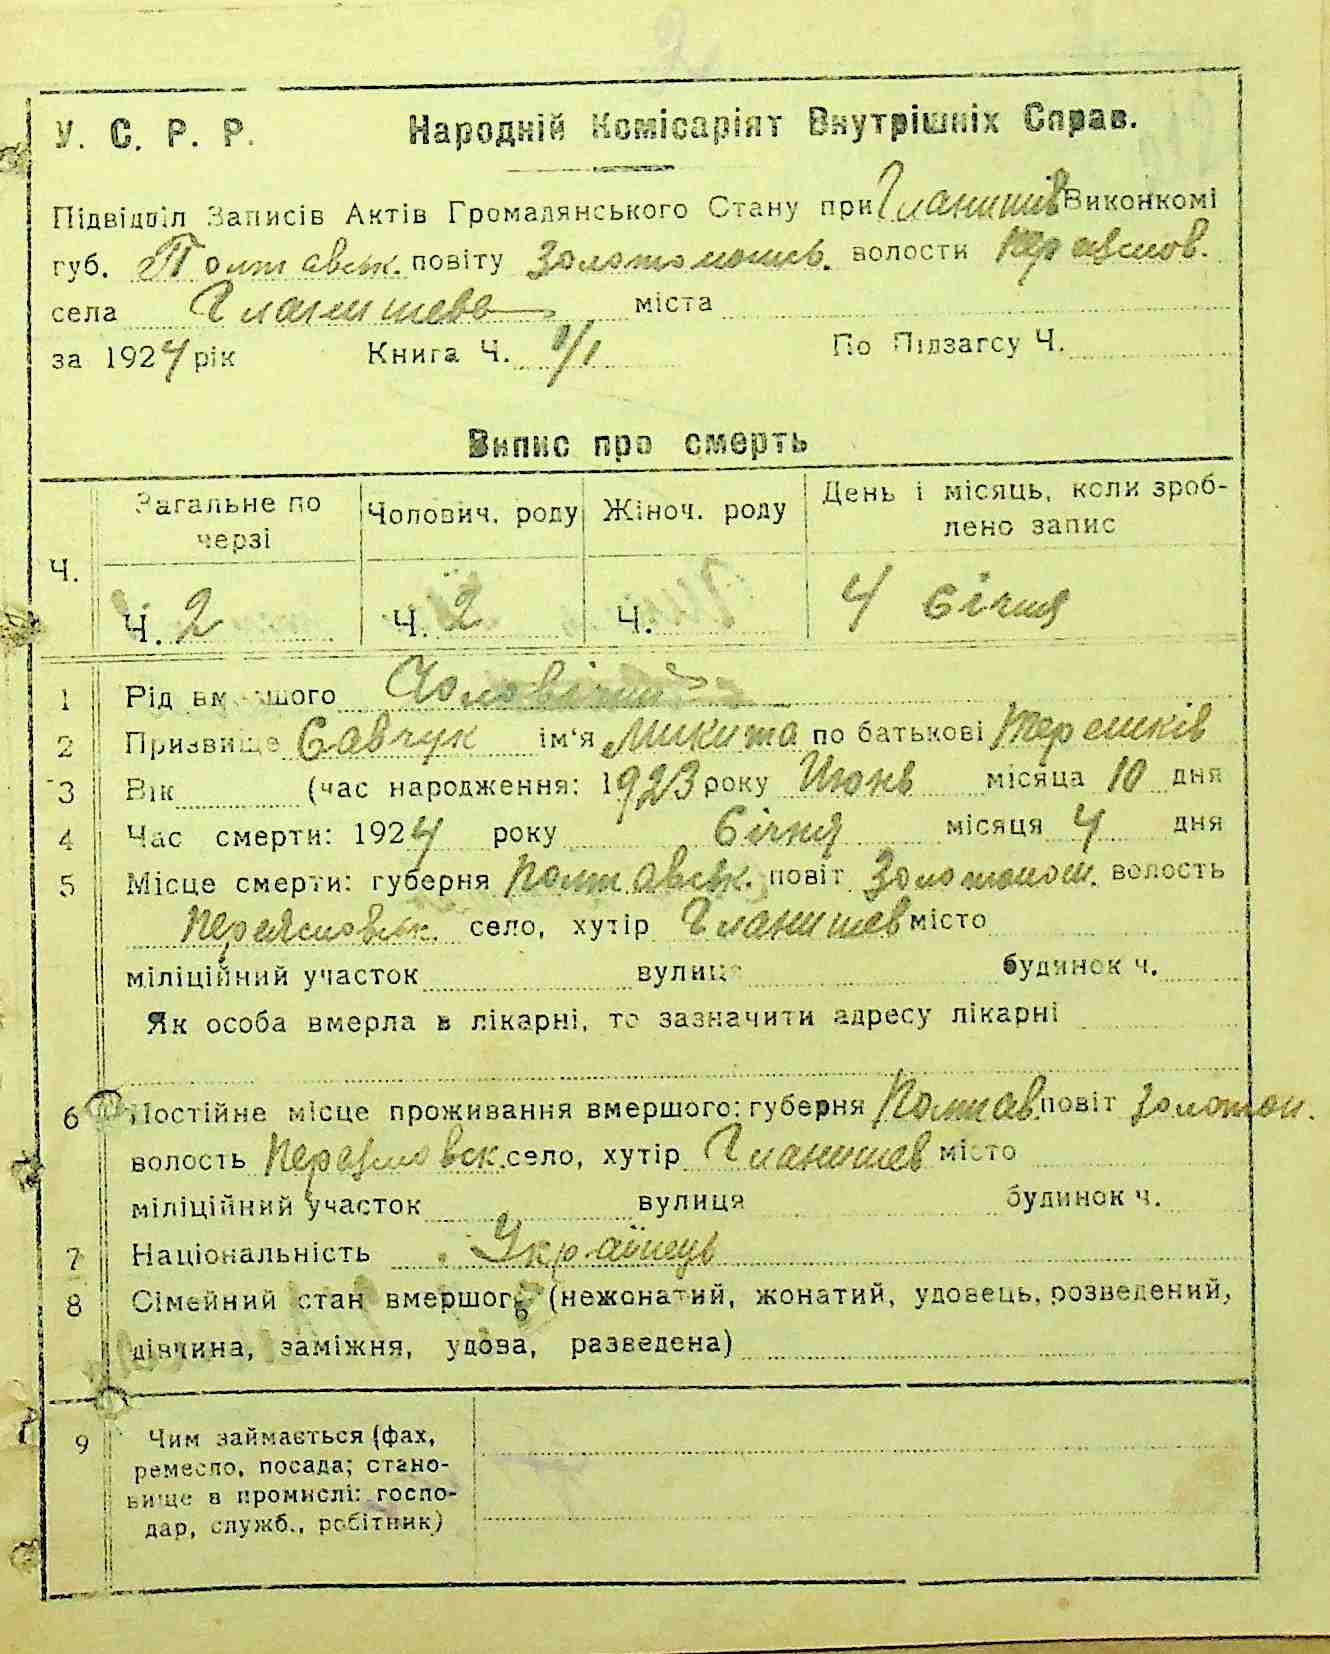 У. С. Р. Р. Народній Комісаріят Внутрішніх Справ.
Підвідділ Записів Актів Громадянського Стану при Гланишів Виконкомі
губ. Полтавськ. повіту Золотоношь. волости Переяслов.
села Гланишева міста
за 1924 рік Книга Ч. По Підзагсу Ч.
Випис про смерть
Ч. Загальне по черзі Чолович. роду Жіноч. роду День і місяць, коли зроблено запис
Ч. 2 Ч. 2 Ч. 4 Січня
1 Рід вмершого Чоловічий
2 Призвище Савчук ім'я Микита по батькові Терешків
3 Вік (час народження: 1923 року Июнь місяца 10 дня
4 Час смерти: 1924 року Січня місяця 4 дня
5 Місце смерти: губерня Полтавськ. повіт Золотонош. волость
Переясловськ. село, хутір Гланишев місто
міліційний участок вулиця будинок ч.
Як особа вмерла в лікарні, то зазначити адресу лікарні
6 Постійне місце проживання вмершого: губерня Полтав. повіт Золотон.
волость Переясловск. село, хутір Гланишев місто
міліційний участок вулиця будинок ч.
7 Національність Українець
8 Сімейний стан вмершого (нежонатий, жонатий, удовець, розведений,
дівчина, заміжня, удова, разведена)
9 Чим займається (фах,
ремесло, посада; стано-
вище в промислі: госпо-
дар, служб., робітник)